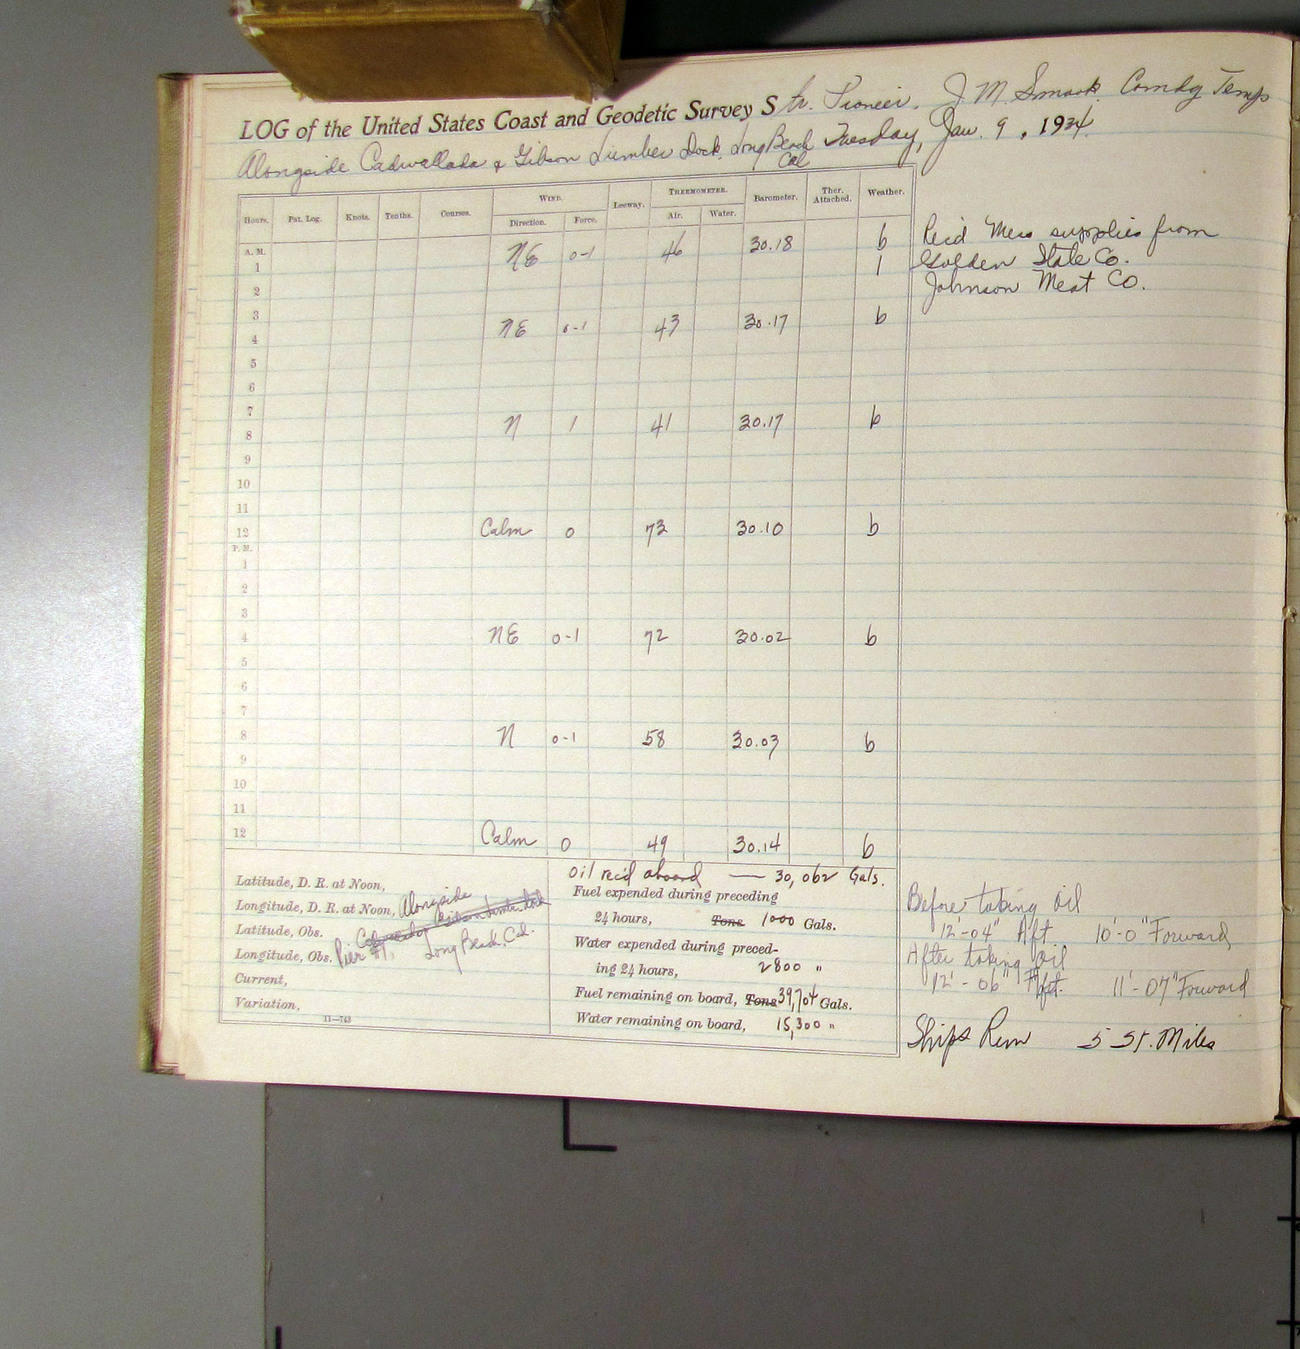 LOG of the United States Coast and Geodetic Survey Str. Pioneer. J M. Smook. Comdg Temp
Alongside Cadwallada & Gibson Lumber Dock, Long Beach Tuesday, Jan. 9, 1934.
Cal
Hours. Pat. Log. Knots. Tenths. Courses. WIND. Leeway. THERMOMETER. Barometer. Ther. Attached. Weather.
Direction. Force. Air. Water.
A. M. NE 0-1 46 30.18 b Rec'd Mess supplies from
1 1 Golden State Co.
2 Johnson Meat Co.
3
4 NE 0-1 43 30.17 b
5
6
7
8 N 1 41 30.17 b
9
10
11
12 Calm 0 73 30.10 b
P. M.
1
2
3
4 NE 0-1 72 30.02 b
5
6
7
8 N 0-1 58 30.03 b
9
10
11
12 Calm 0 49 30.14 b
Oil rec'd aboard — 30,062 Gals.
Latitude, D. R. at Noon,
Longitude, D. R. at Noon, Alongside
Latitude, Obs.
Longitude, Obs. Pier #1, Long Beach, Cal.
Current,
Variation,
11—743
Fuel expended during preceding
24 hours, Tons 1000 Gals.
Water expended during preced-
ing 24 hours, 2800 "
Fuel remaining on board, Tons 39,704 Gals.
Water remaining on board, 15,300 "
Before taking oil
12'-04" Aft 10'-0" Forward
After taking oil
12'-06" Aft. 11'-07" Forward
Ships Run 5 St. Miles